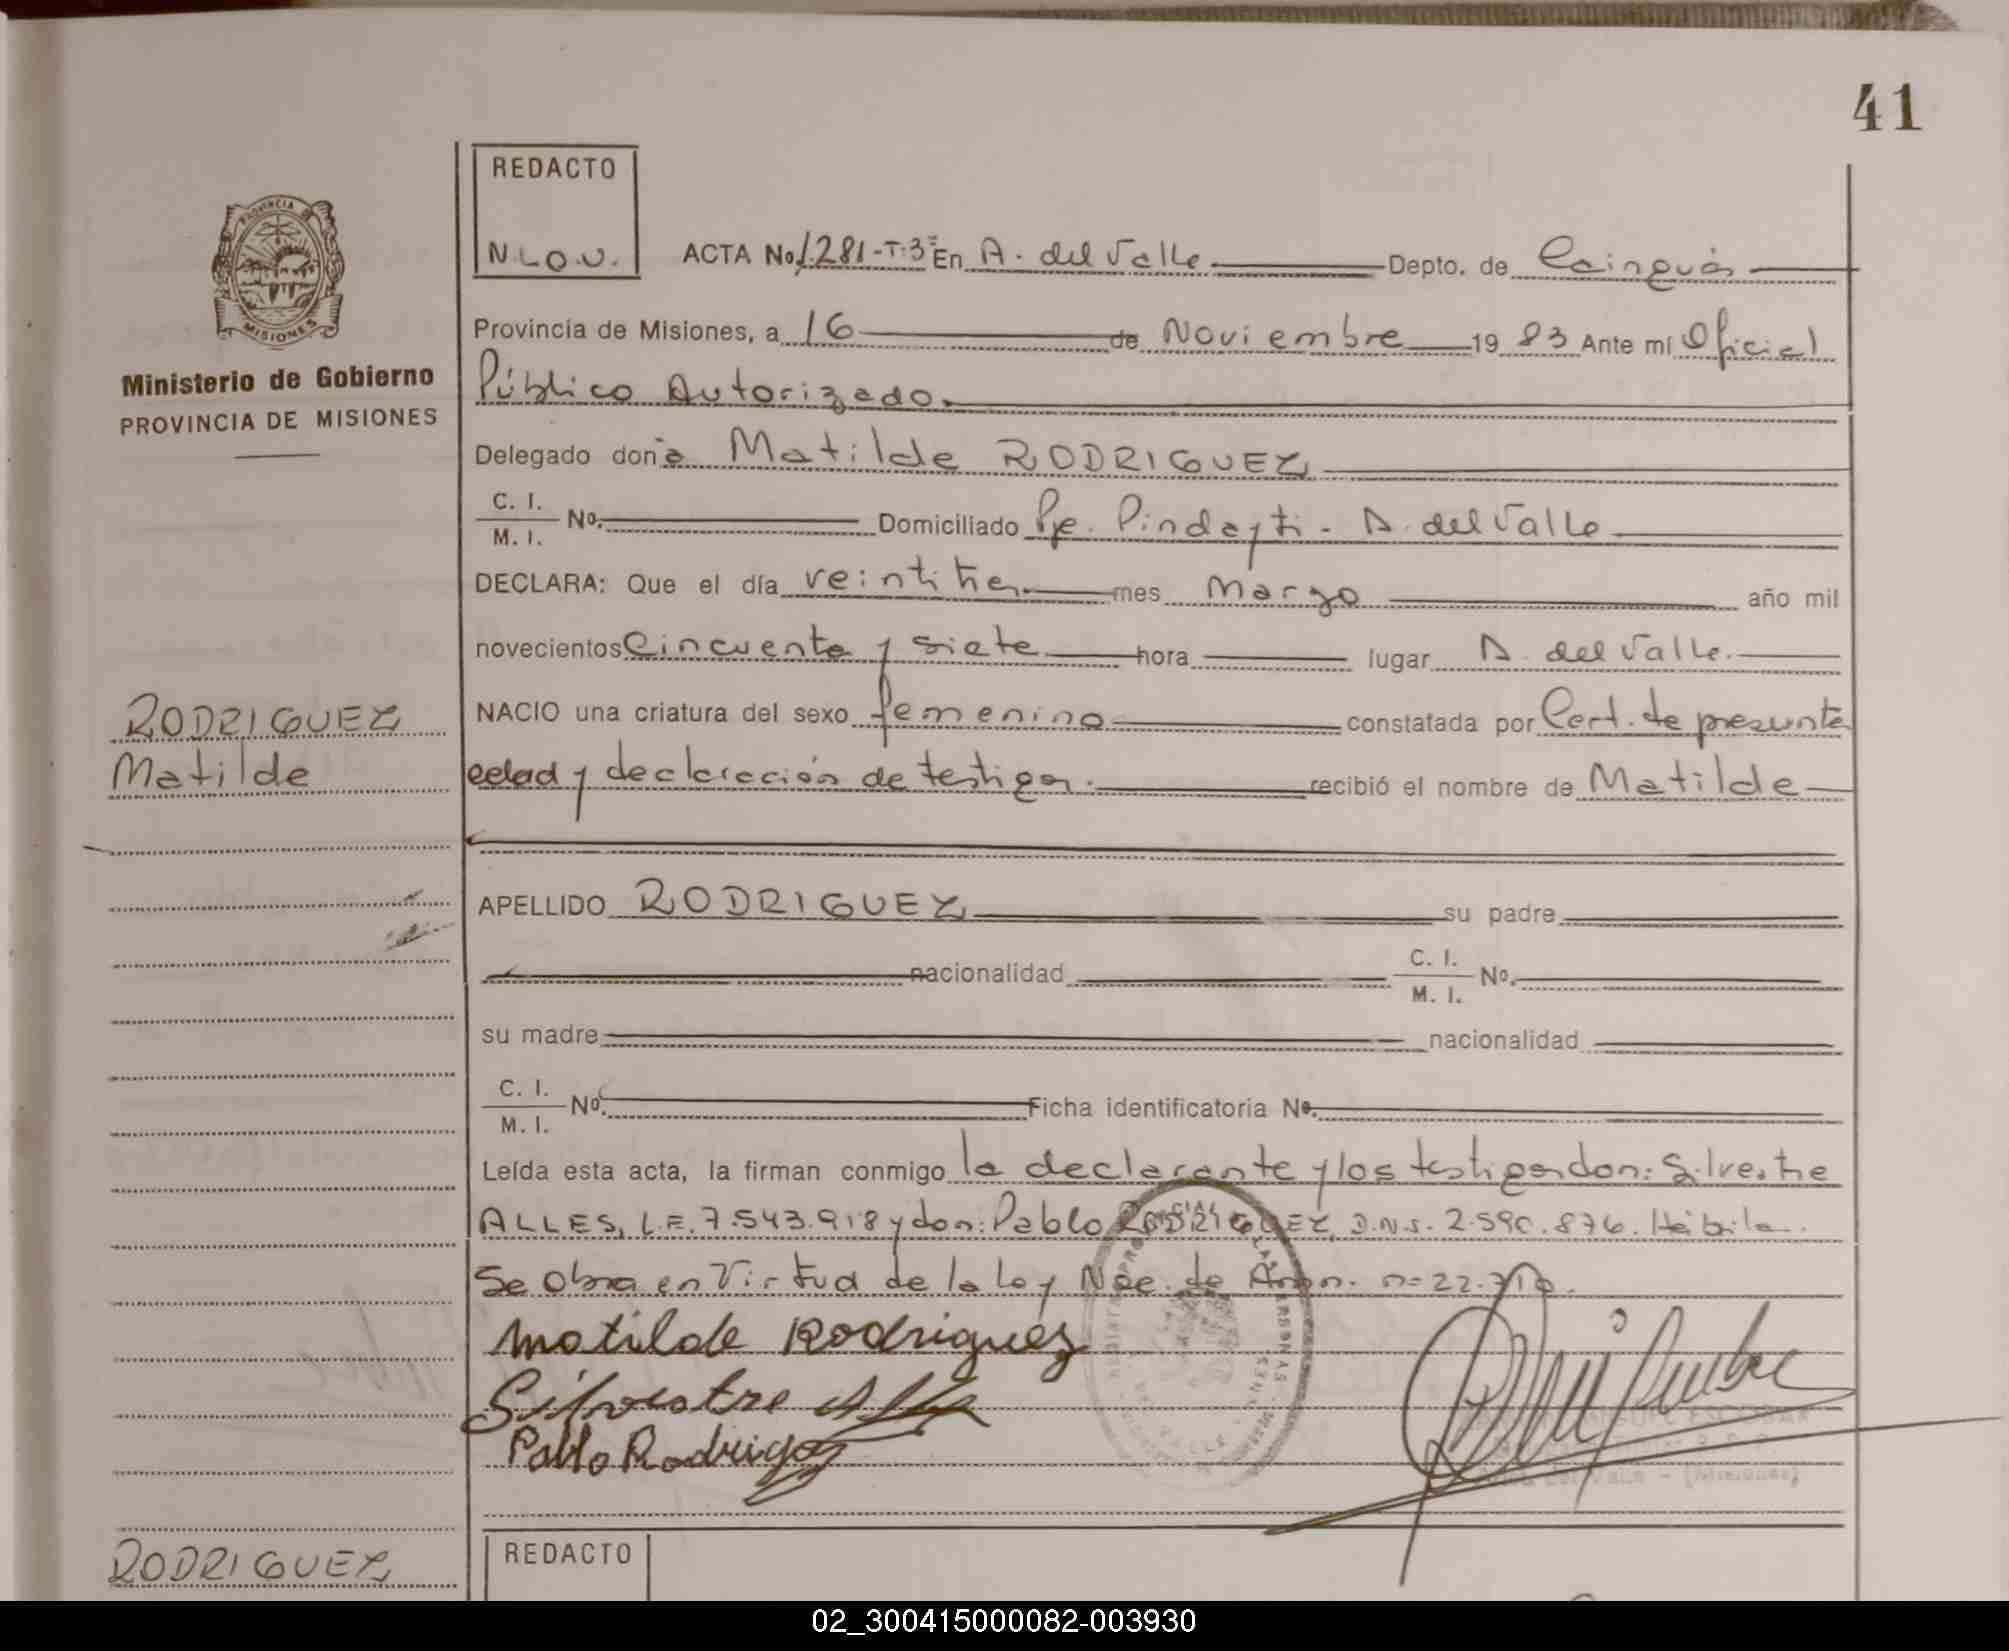 41
REDACTO
N.L.O.V.
ACTA No 1.281-T:3º En A. del Valle Depto. de Cainguás
Provincia de Misiones, a 16 de Noviembre 19 83 Ante mí Oficial
Público Autorizado.
PROVINCIA
MISIONES
Ministerio de Gobierno
PROVINCIA DE MISIONES
Delegado doña Matilde RODRIGUEZ
C. I.
M. I. No. Domiciliado Pje. Pindayti - A. del Valle
DECLARA: Que el día veintitres mes Marzo año mil
novecientos Cincuenta y siete hora lugar A. del Valle.
RODRIGUEZ
Matilde
NACIO una criatura del sexo femenino constatada por Cert. de presunta
edad y declaración de testigos. recibió el nombre de Matilde
APELLIDO RODRIGUEZ su padre
nacionalidad C. I.
M. I. No.
su madre nacionalidad
C. I.
M. I. No. Ficha identificatoria No.
Leída esta acta, la firman conmigo la declarante y los testigos don: Silvestre
ALLES, L.E. 7.543.918 y don: Pablo RODRIGUEZ, D.N.I. 2.590.876. Hábiles.
Se Obra en Virtud de la Ley Nac. de Amn. nº 22.710.
Matilde Rodriguez
Silvestre Alles
Pablo Rodriguez
ESCOBAR
del Valle - (Misiones)
RODRIGUEZ
REDACTO
02_300415000082-003930